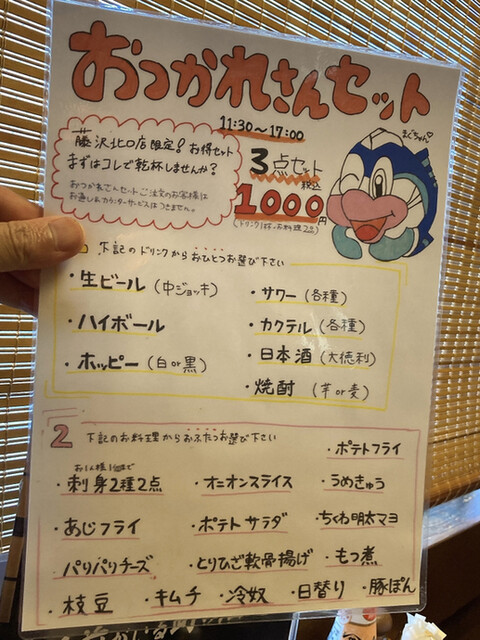 おつかれさんセット
11:30〜17:00
まぐちゃん♡
藤沢北口店限定! お得セット
まずはコレで乾杯しませんか?
おつかれさんセットご注文のお客様は
お通し&カウンターサービスはつきません。
3点セット
税込
1000円
(ドリンク1杯+お料理2品)
下記のドリンクからおひとつお選び下さい
・生ビール (中ジョッキ)
・ハイボール
・ホッピー (白or黒)
・サワー (各種)
・カクテル (各種)
・日本酒 (大徳利)
・焼酎 (芋or麦)
2 下記のお料理からおふたつお選び下さい
・ポテトフライ
お1人様1個まで
・刺身2種2点
・オニオンスライス
・うめきゅう
・あじフライ
・ポテトサラダ
・ちくわ明太マヨ
・パリパリチーズ
・とりひざ軟骨揚げ
・もつ煮
・枝豆
・キムチ
・冷奴
・日替り
・豚ぽん